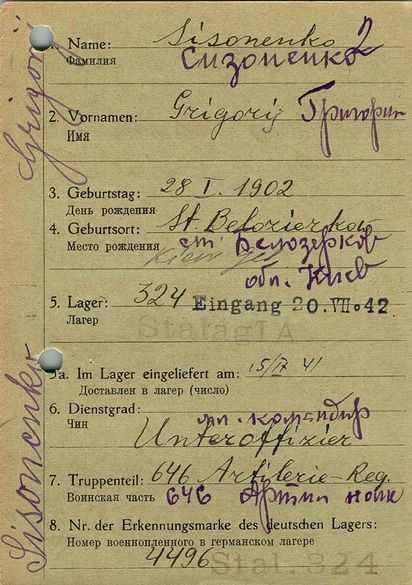 1. Name: Sisonenko 2
Фамилия Сизоненко
2. Vornamen: Grigorij Григорий
Имя
3. Geburtstag: 28 I. 1902
День рождения
4. Geburtsort: St. Belozierkow
Место рождения ст. Белозерков
Kiew Geb
обл. Киев
5. Lager: 324 Eingang 20. VII. 42
Лагер
Stalag IA
5a. Im Lager eingeliefert am: 15/IX 41
Доставлен в лагер (число)
6. Dienstgrad: мл. командир
Чин Unteroffizier
7. Truppenteil: 646 Artilerie-Reg.
Воинская часть 646 Артил полк
8. Nr. der Erkennungsmarke des deutschen Lagers:
Номер военнопленного в германском лагере
4496 Stal. 324
Grigorij
Sisonenko